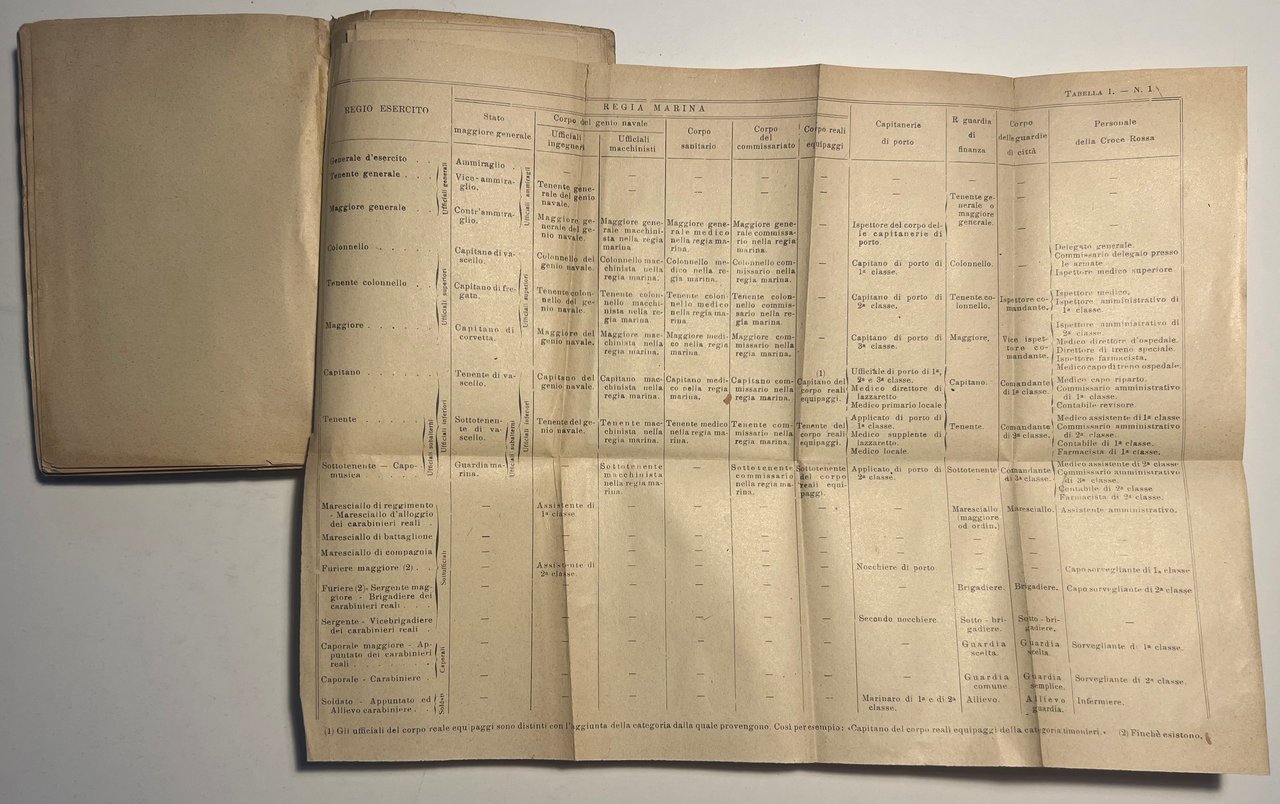 TABELLA 1. — N. 1
REGIO ESERCITO
REGIA MARINA
Stato
maggiore generale
Corpo del genio navale
Ufficiali
ingegneri
Ufficiali
macchinisti
Corpo
sanitario
Corpo
del
commissariato
Corpo reali
equipaggi
Capitanerie
di porto
R guardia
di
finanza
Corpo
delle guardie
di città
Personale
della Croce Rossa
Generale d'esercito . .
Ammiraglio .
—
—
—
—
—
—
—
—
—
Tenente generale . . .
Ufficiali generali
Vice-ammira-
glio.
Ufficiali ammiragli
Tenente gene-
rale del genio
navale.
—
—
—
—
—
Tenente ge-
nerale o
maggiore
generale.
—
—
Maggiore generale . .
Contr'ammira-
glio.
Maggiore ge-
nerale del ge-
nio navale.
Maggiore gene-
rale macchini-
sta nella regia
marina
Maggiore gene-
rale medico
nella regia ma-
rina.
Maggiore gene-
rale commissa-
rio nella regia
marina.
—
Ispettore del corpo del-
le capitanerie di
porto.
—
Colonnello . . . . .
Capitano di va-
scello.
Colonnello del
genio navale.
Colonnello mac-
chinista nella
regia marina.
Colonnello me-
dico nella re-
gia marina.
Colonnello com-
missario nella
regia marina.
—
Capitano di porto di
1ª classe.
Colonnello.
—
Delegato generale.
Commissario delegato presso
le armate
Ispettore medico superiore
Tenente colonnello . .
Ufficiali superiori
Capitano di fre-
gata.
Ufficiali superiori
Tenente colon-
nello del ge-
nio navale.
Tenente colon-
nello macchi-
nista nella re-
gia marina
Tenente colon-
nello medico
nella regia ma-
rina.
Tenente colon-
nello commis-
sario nella re-
gia marina.
—
Capitano di porto di
2ª classe.
Tenente co-
lonnello.
Ispettore co-
mandante.
Ispettore medico.
Ispettore amministrativo di
1ª classe.
Maggiore . . . . . .
Capitano di
corvetta.
Maggiore del
genio navale.
Maggiore mac-
chinista nella
regia marina.
Maggiore medi-
co nella regia
marina.
Maggiore com-
missario nella
regia marina.
—
Capitano di porto di
3ª classe.
Maggiore.
Vice ispet-
tore co-
mandante.
Ispettore amministrativo di
2ª classe.
Medico direttore d'ospedale.
Direttore di treno speciale.
Ispettore farmacista.
Medico capo di treno ospedale.
Capitano . . . . .
Tenente di va-
scello.
Capitano del
genio navale.
Capitano mac-
chinista nella
regia marina.
Capitano medi-
co nella regia
marina.
Capitano com-
missario nella
regia marina.
(1)
Capitano del
corpo reali
equipaggi.
Ufficiale di porto di 1ª,
2ª e 3ª classe.
Medico direttore di
lazzaretto
Medico primario locale
Capitano.
Comandante
di 1ª classe.
Medico capo riparto.
Commissario amministrativo
di 1ª classe.
Contabile revisore.
Tenente . . . . . .
Ufficiali subalterni
Ufficiali inferiori
Sottotenen-
te di va-
scello.
Ufficiali subalterni
Ufficiali inferiori
Tenente del ge-
nio navale.
Tenente mac-
chinista nella
regia marina.
Tenente medico
nella regia ma-
rina.
Tenente com-
missario nella
regia marina.
Tenente del
corpo reali
equipaggi.
Applicato di porto di
1ª classe.
Medico supplente di
lazzaretto.
Medico locale.
Tenente.
Comandante
di 2ª classe.
Medico assistente di 1ª classe
Commissario amministrativo
di 2ª classe.
Contabile di 1ª classe.
Farmacista di 1ª classe.
Sottotenente — Capo-
musica
Guardia ma-
rina.
—
Sottotenente
macchinista
nella regia ma-
rina.
—
Sottotenente
commissario
nella regia ma-
rina.
Sottotenente
del corpo
reali equi-
paggi.
Applicato di porto di
2ª classe.
Sottotenente
Comandante
di 3ª classe.
Medico assistente di 2ª classe
Commissario amministrativo
di 3ª classe.
Contabile di 2ª classe
Farmacista di 2ª classe.
Maresciallo di reggimento
- Maresciallo d'alloggio
dei carabinieri reali .
—
Assistente di
1ª classe.
—
—
—
—
—
Maresciallo
(maggiore
od ordin.)
Maresciallo.
Assistente amministrativo.
Maresciallo di battaglione
—
—
—
—
—
—
—
—
—
—
Maresciallo di compagnia
—
—
—
—
—
—
—
—
—
—
Furiere maggiore (2) . .
Sottufficiali
—
Assistente di
2ª classe.
—
—
—
—
Nocchiere di porto
—
—
Capo sorvegliante di 1ª classe
Furiere (2)- Sergente mag-
giore - Brigadiere dei
carabinieri reali .
—
—
—
—
—
—
—
Brigadiere.
Brigadiere.
Capo sorvegliante di 2ª classe
Sergente - Vicebrigadiere
dei carabinieri reali .
—
—
—
—
—
—
Secondo nocchiere.
Sotto - bri-
gadiere.
Sotto - bri-
gadiere.
—
Caporale maggiore - Ap-
puntato dei carabinieri
reali . . . . . .
Caporali
—
—
—
—
—
—
—
Guardia
scelta.
Guardia
scelta.
Sorvegliante di 1ª classe.
Caporale - Carabiniere .
—
—
—
—
—
—
—
Guardia
comune
Guardia
semplice.
Sorvegliante di 2ª classe.
Soldato - Appuntato ed
Allievo carabiniere . .
Soldati
—
—
—
—
—
—
Marinaro di 1ª e di 2ª
classe.
Allievo.
Allievo
guardia.
Infermiere.
(1) Gli ufficiali del corpo reale equipaggi sono distinti con l'aggiunta della categoria dalla quale provengono. Così per esempio: «Capitano del corpo reali equipaggi della categoria timonieri.» (2) Finchè esistono.